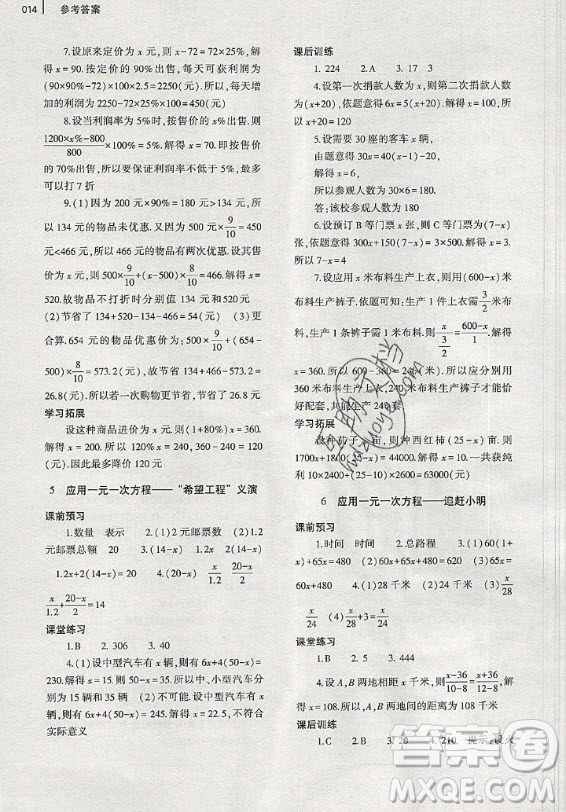 014 参考答案
7.设原来定价为 x 元,则 x-72=72×25%,解得
x=90. 按定价的 90%出售,每天可获利润为
(90×90%-72)×100×2.5=2250(元).所以每天增
加的利润为 2250-1800=450(元)
8.设当利润率为 5%时,按售价的 x%出售.则
(1200×x%-800)/800×100%=5%.解得 x=70.按售
价的 70%出售,所以要保证利润率不低于 5%,最多
可以打 7 折
9.(1)因为 200×90%=180.180>134,所
以 134 元的物品未优惠.又 500×9/10=450
元<466 元,所以 466 元的物品有两次优惠.设其售价
为 x 元,则 500×9/10+(x-500)×8/10=466.解得 x=
520.故物品不打折时分别值 134 元和 520 元
(2)节省了 134+520-134-466=54(元) (3)更
合算.654 元的物品优惠价为:500×9/10+(654-
500)×8/10=573.2(元),故节省 134+466-573.2=
26.8(元).所以若一次购物更节省,节省了 26.8 元
学习拓展
设这种商品进价为 x 元.则(1+80%)x=360.
解得 x=200.200×(1+20%)=240(元),360-240=
120(元).因此最多降价 120 元
5 应用一元一次方程——“希望工程”义演
课前预习
1.数量 表示 2.(1)2 元邮票数 (2)1.2
元邮票总额 20 3.(1)(14-x) (2)(20-1.2x)
4. 1.2x+2(14-x)=20 x/1.2 (20-x)/2
x/1.2+(20-x)/2=14
课堂练习
1.B 2. 306 3. 40
4.(1)设中型汽车有 x 辆,则有 6x+4(50-x)=
230.解得 x=15.则 50-x=35.所以中、小型汽车分
别为 15 辆和 35 辆 (2)不可能.设中型汽车有 x
辆,则有 6x+4(50-x)=245.解得 x=22.5.不符合
实际意义
课后训练
1. 224 2. A 3. 17 3
4.设第一次捐款人数为 x,则第二次捐款人数
为(x+20),依题意得 6x=5(x+20).解得 x=100
5.设需要 30 座的客车 x 辆,
由题意得 30x=40(x-1)-20
解得 x=6.
所以参观人数为 30×6=180.
答:该校参观人数为 180
6.设预订 B 等门票 x 张,则 C 等门票为(7-x)
张.依题意得 300x+150(7-x)=1500.解得 x=3.
所以 7-x=4
7.设应用 x 米布料生产上衣,则用(600-x)米
布料生产裤子.依题可知:生产 1 件上衣需 3/2 米布
料,生产 1 条裤子需 1 米布料.故 x/(3/2)=(600-x)/1.解得
x=360.所以 600-360=240(米).所以应分别用
360 米布料生产上衣,240 米布料生产裤子才能恰
好配套,共能生产 240 套
学习拓展
设种茄子 x 亩,则种西红柿(25-x)亩,则
1700x+1800(25-x)=44000.解得 x=10.获纯利
10×2400+(25-10)×2600=63000(元)
6 应用一元一次方程——追赶小明
课前预习
1.时间 时间 2.总路程 3.(1)60x 480
(2)60x+480 4.(1)28 千米 (2)24 千米 (3)x/28
x/24 (4)x/28+3=x/24
课堂练习
1.B 2.A 3.5 4. 444
5.设 A、B 两地相距 x 千米,则 (x-36)/(10-8)=(x+36)/(12-8).解
得 x=108.所以,A、B 两地间的距离为 108 千米
课后训练
1.C 2.B 3. 20 4. 210 提示:设火
作业大档案
MXQE.COM